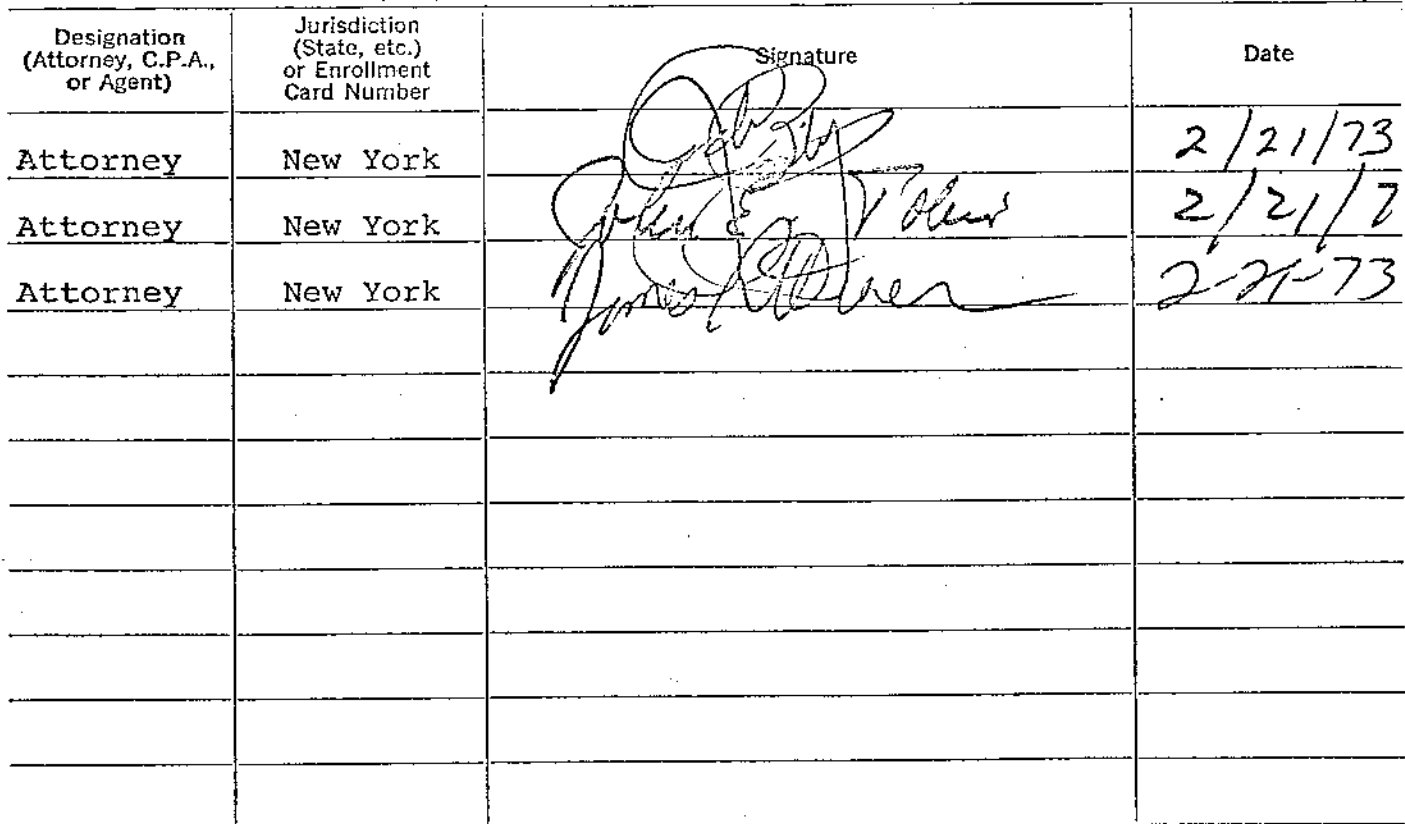 Designation
(Attorney, C.P.A.,
or Agent)
Jurisdiction
(State, etc.)
or Enrollment
Card Number
Signature
Date
Attorney New York 2/21/73
Attorney New York John E. Tobin 2/21/7
Attorney New York James 2-21-73